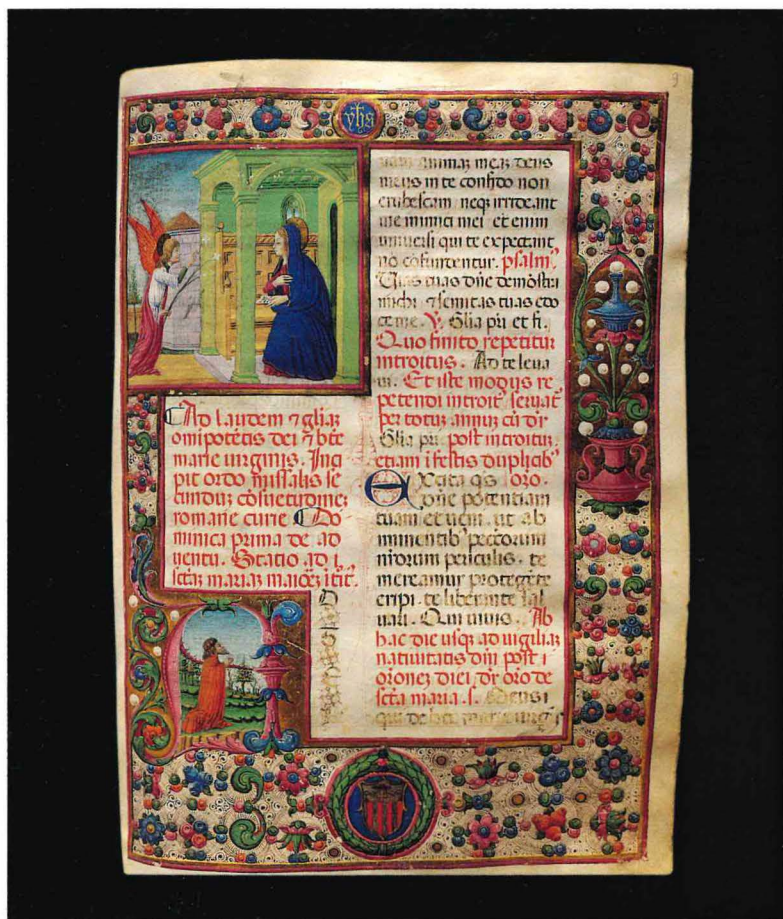 yhs
9
¶Ad laudem ⁊ gliaꝫ
omipotētis dei ⁊ bt̄e
marie uirginis. Inci
pit ordo missalis se
cunduꝫ cōsuetudineꝫ
romane curie ¶Do
minica prima de ad
uentu. Statio ad
sctāꝫ mariaꝫ maiorē
A
D
animaꝫ meaꝫ deus
meus in te confido non
erubescam neqꝫ irrideant
me inimici mei et enim
uniuersi qui te expectant
nō cōfundentur. psalmꝰ
Uias tuas dn̄e demōstra
michi ⁊ semitas tuas edo
ce me. V. Glia pri et fi.
Quo finito repetitur
introitus. Ad te leua
ui. Et iste modus re
petendi introit seruat
per totuꝫ annuꝫ cū dr̄
Glia pri. post introituꝫ
etiam i festis duplicibꝰ
Excita qs oro.
dn̄e potentiam
tuam et ueni. ut ab
iminentibꝰ peccatorum
nrōrum periculis. te
mereamur protegēte
eripi. te liberante sal
uari. Qui uiuis. Ab
hac die usqꝫ ad uigiliaꝫ
natiuitatis dn̄i post i
orōneꝫ diei dr̄ oro de
sctā maria .s. Deus
qui de bte marie uirgis